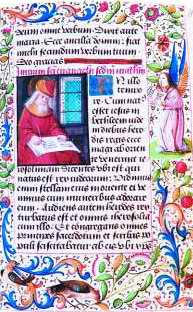 deum enim verbum. Dixit aute
maria. Ecce ancilla domini: fiat
michi secundum verbum tuum.
Deo gracias
In illo
tempore
Cum nat
esset iesus in
bethleem iude
in diebus hero
dis regis ecce
magi ab orien
te venerunt ie
rosolimam dicentes ubi est qui
natus est rex iudeorum: vidimus
enim stellam eius in oriente et ve
nimus cum muneribus adorare
eum. Audiens autem herodes rex
turbatus est et omnis iherosolima
cum illo. Et congregans omnes
principes sacerdotum et scribas po
puli sciscitabatur ab eis ubi xps